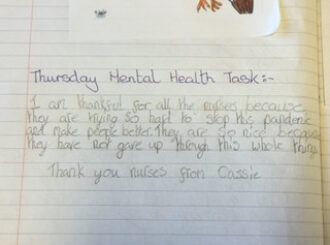 Thursday Mental Health Task:-
I am thankful for all the nurses because
they are trying so hard to stop this pandemic
and make people better. They are so nice because
they have not gave up through this whole thing
Thank you nurses from Cassie